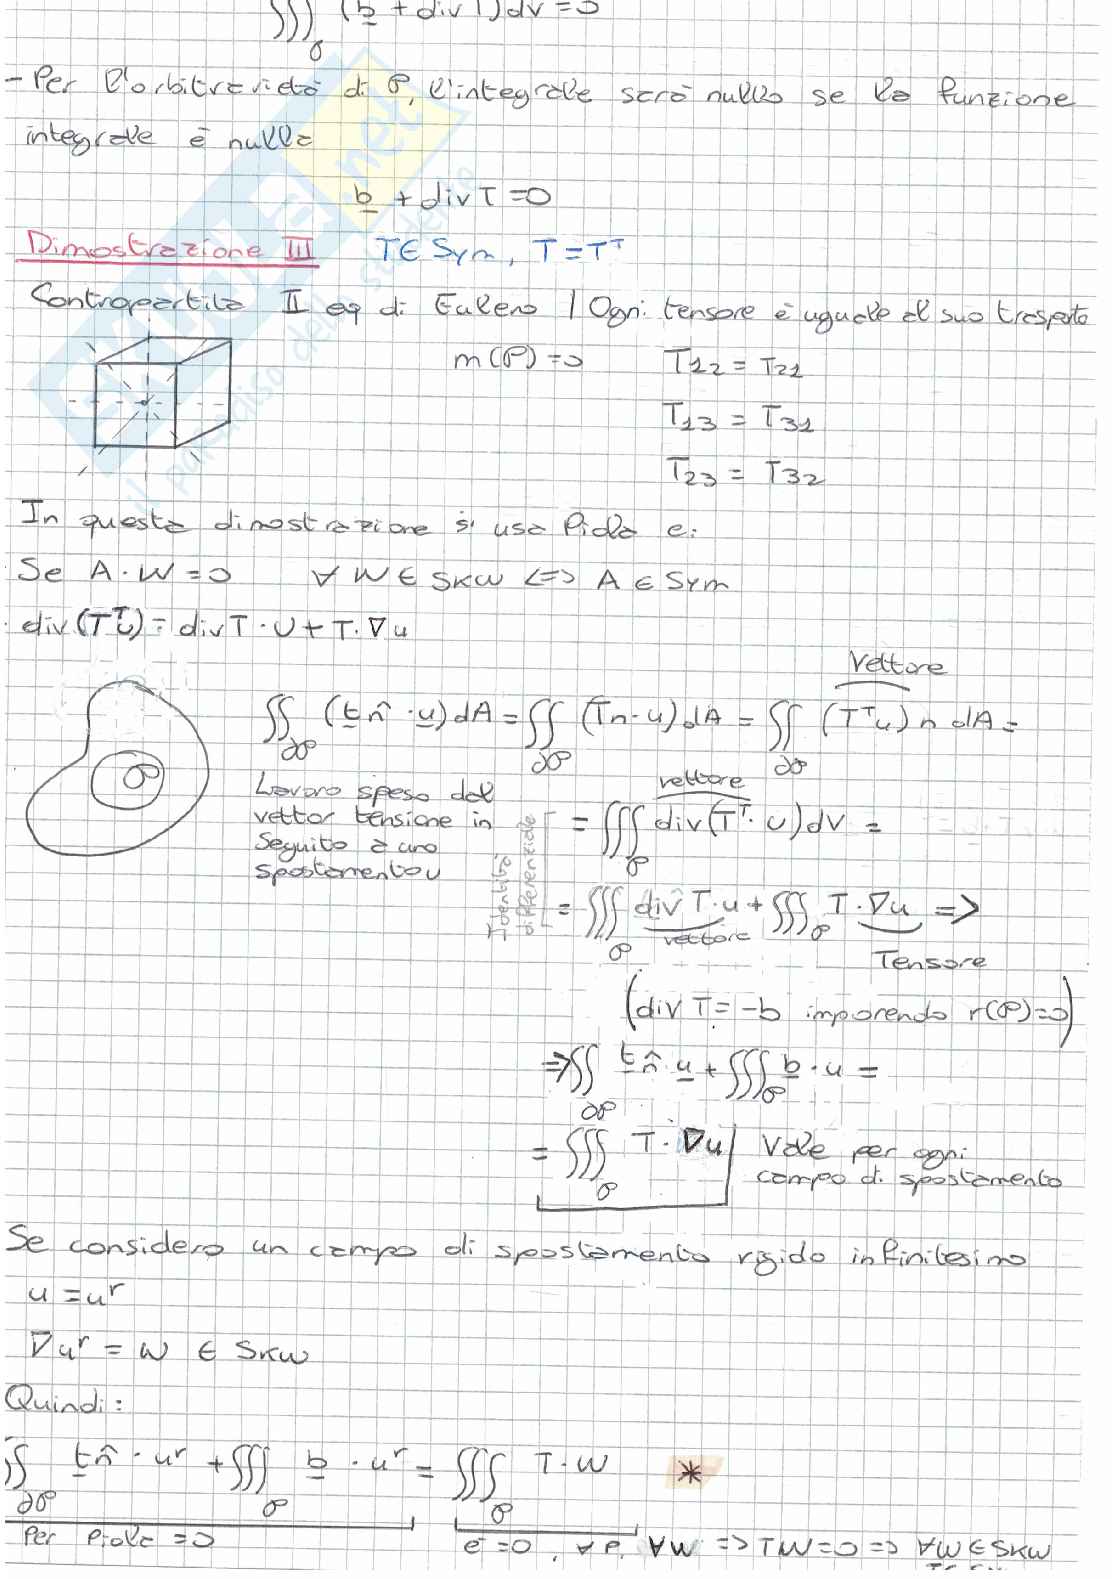 ∭_℘ (b + div T) dv = 0
- Per l'arbitrarietà di ℘, l'integrale sarà nullo se la funzione
integrale è nulla
b + div T = 0
Dimostrazione III   T ∈ Sym, T = Tᵀ
Contropartita II eq di Eulero / Ogni tensore è uguale al suo trasposto
m(℘) = 0   T12 = T21
T13 = T31
T23 = T32
In questa dimostrazione si usa Piola e:
Se A · W = 0   ∀ W ∈ SKW <=> A ∈ Sym
div(Tᵀu) = div T · U + T · ∇u
Vettore
∬_∂℘ (t n̂ · u) dA = ∬_∂℘ (Tn · u) dA = ∬_∂℘ (Tᵀu) n dA =
℘
Lavoro speso dal
vettor tensione in
seguito a uno
spostamento u
vettore
= ∭_℘ div(Tᵀ · U) dv =
Identità
differenziale
= ∭_℘ div T · u + ∭_℘ T · ∇u =>
vettore
Tensore
(div T = -b imponendo r(℘) = 0)
=> ∬_∂℘ t n̂ · u + ∭_℘ b · u =
= ∭_℘ T · ∇u   Vale per ogni
campo di spostamento
Se considero un campo di spostamento rigido infinitesimo
u = uʳ
∇uʳ = W ∈ SKW
Quindi:
∬_∂℘ t n̂ · uʳ + ∭_℘ b · uʳ = ∭_℘ T · W   *
Per Piola = 0   è = 0, ∀ P, ∀W => TW = 0 => ∀W ∈ SKW